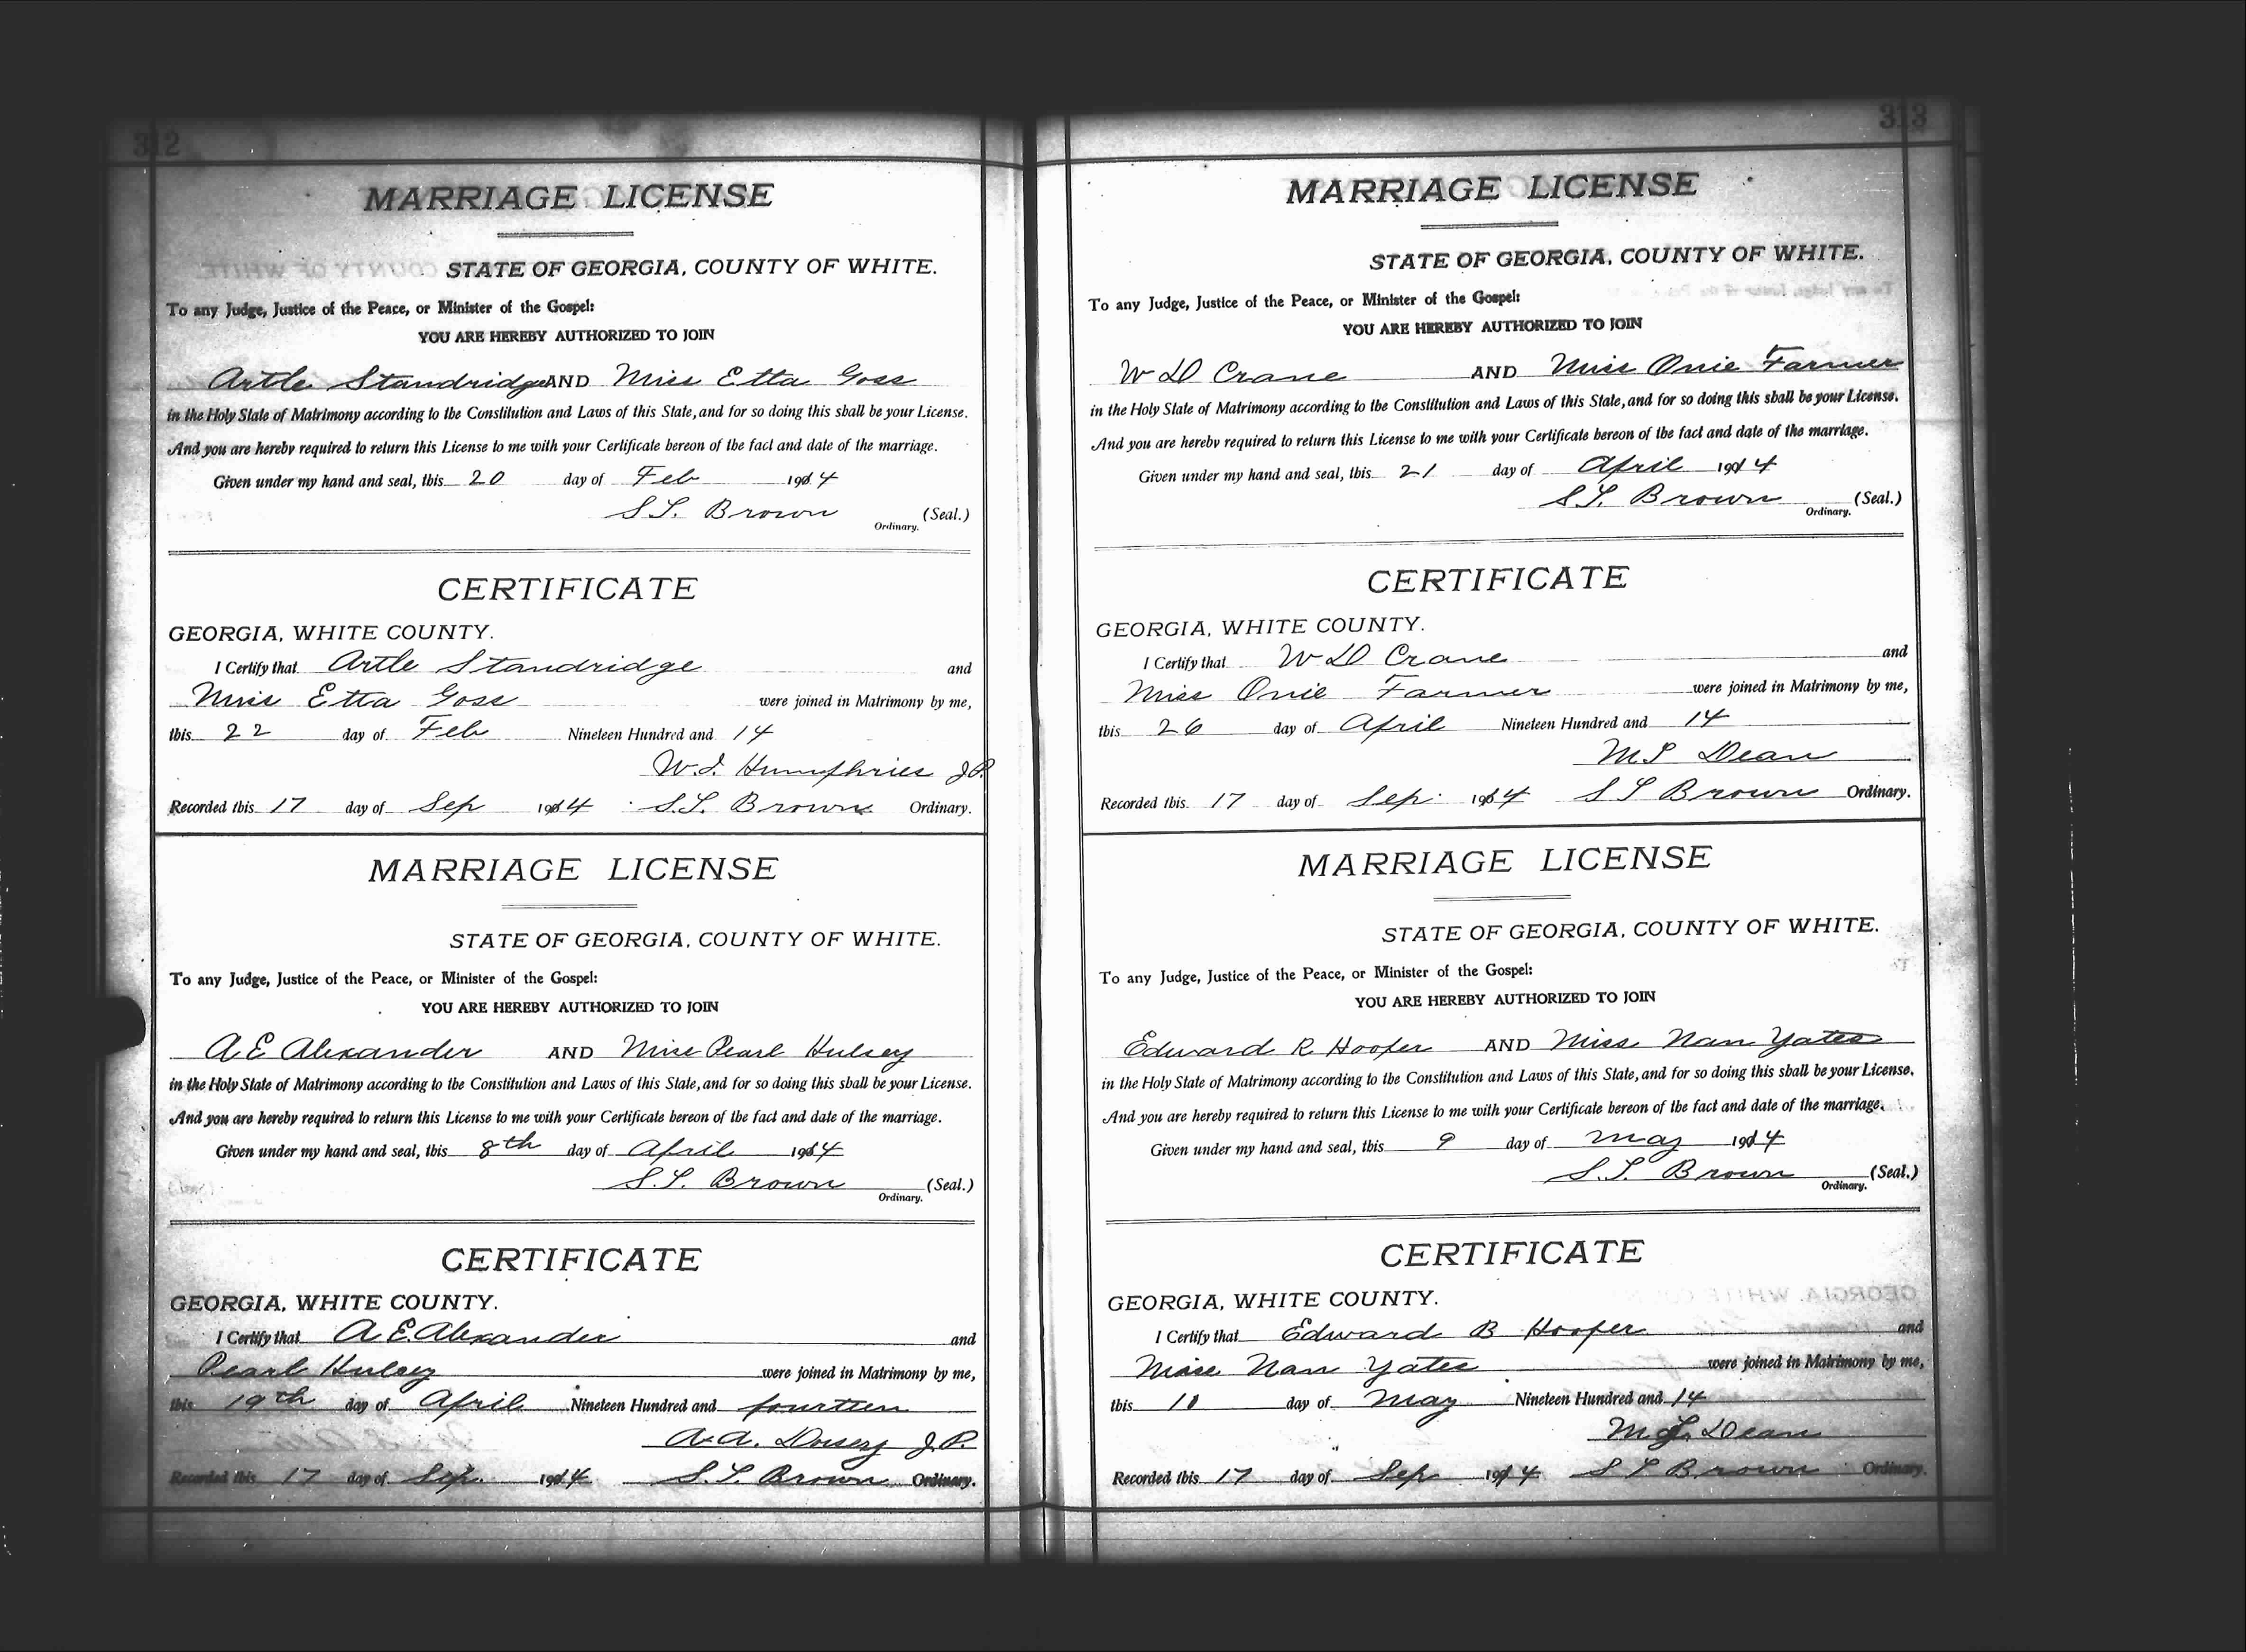 312
MARRIAGE LICENSE
STATE OF GEORGIA, COUNTY OF WHITE.
To any Judge, Justice of the Peace, or Minister of the Gospel:
YOU ARE HEREBY AUTHORIZED TO JOIN
Artle Standridge AND Miss Etta Goss
in the Holy State of Matrimony according to the Constitution and Laws of this State, and for so doing this shall be your License.
And you are hereby required to return this License to me with your Certificate hereon of the fact and date of the marriage.
Given under my hand and seal, this 20 day of Feb 1914
S.L. Brown (Seal.)
Ordinary.
CERTIFICATE
GEORGIA, WHITE COUNTY.
I Certify that Artle Standridge and
Miss Etta Goss were joined in Matrimony by me,
this 22 day of Feb Nineteen Hundred and 14
W.I. Humphries J.P.
Recorded this 17 day of Sep 1914 S.L. Brown Ordinary.
MARRIAGE LICENSE
STATE OF GEORGIA, COUNTY OF WHITE.
To any Judge, Justice of the Peace, or Minister of the Gospel:
YOU ARE HEREBY AUTHORIZED TO JOIN
A E Alexander AND Miss Pearl Hulsey
in the Holy State of Matrimony according to the Constitution and Laws of this State, and for so doing this shall be your License.
And you are hereby required to return this License to me with your Certificate hereon of the fact and date of the marriage.
Given under my hand and seal, this 8th day of April 1914
S.L. Brown (Seal.)
Ordinary.
CERTIFICATE
GEORGIA, WHITE COUNTY.
I Certify that A.E. Alexander and
Pearl Hulsey were joined in Matrimony by me,
this 19th day of April Nineteen Hundred and fourteen
A.A. Dorsey J.P.
Recorded this 17 day of Sep. 1914 S.L. Brown Ordinary.
313
MARRIAGE LICENSE
STATE OF GEORGIA, COUNTY OF WHITE.
To any Judge, Justice of the Peace, or Minister of the Gospel:
YOU ARE HEREBY AUTHORIZED TO JOIN
W D Crane AND Miss Onie Farmer
in the Holy State of Matrimony according to the Constitution and Laws of this State, and for so doing this shall be your License.
And you are hereby required to return this License to me with your Certificate hereon of the fact and date of the marriage.
Given under my hand and seal, this 21 day of April 1914
S.L. Brown (Seal.)
Ordinary.
CERTIFICATE
GEORGIA, WHITE COUNTY.
I Certify that W D Crane and
Miss Onie Farmer were joined in Matrimony by me,
this 26 day of April Nineteen Hundred and 14
M L Dean
Recorded this 17 day of Sep. 1914 S L Brown Ordinary.
MARRIAGE LICENSE
STATE OF GEORGIA, COUNTY OF WHITE.
To any Judge, Justice of the Peace, or Minister of the Gospel:
YOU ARE HEREBY AUTHORIZED TO JOIN
Edward R. Hooper AND Miss Nan Yates
in the Holy State of Matrimony according to the Constitution and Laws of this State, and for so doing this shall be your License.
And you are hereby required to return this License to me with your Certificate hereon of the fact and date of the marriage.
Given under my hand and seal, this 9 day of May 1914
S.L. Brown (Seal.)
Ordinary.
CERTIFICATE
GEORGIA, WHITE COUNTY.
I Certify that Edward B Hooper and
Miss Nan Yates were joined in Matrimony by me,
this 10 day of May Nineteen Hundred and 14
M L Dean
Recorded this 17 day of Sep 1914 S L Brown Ordinary.